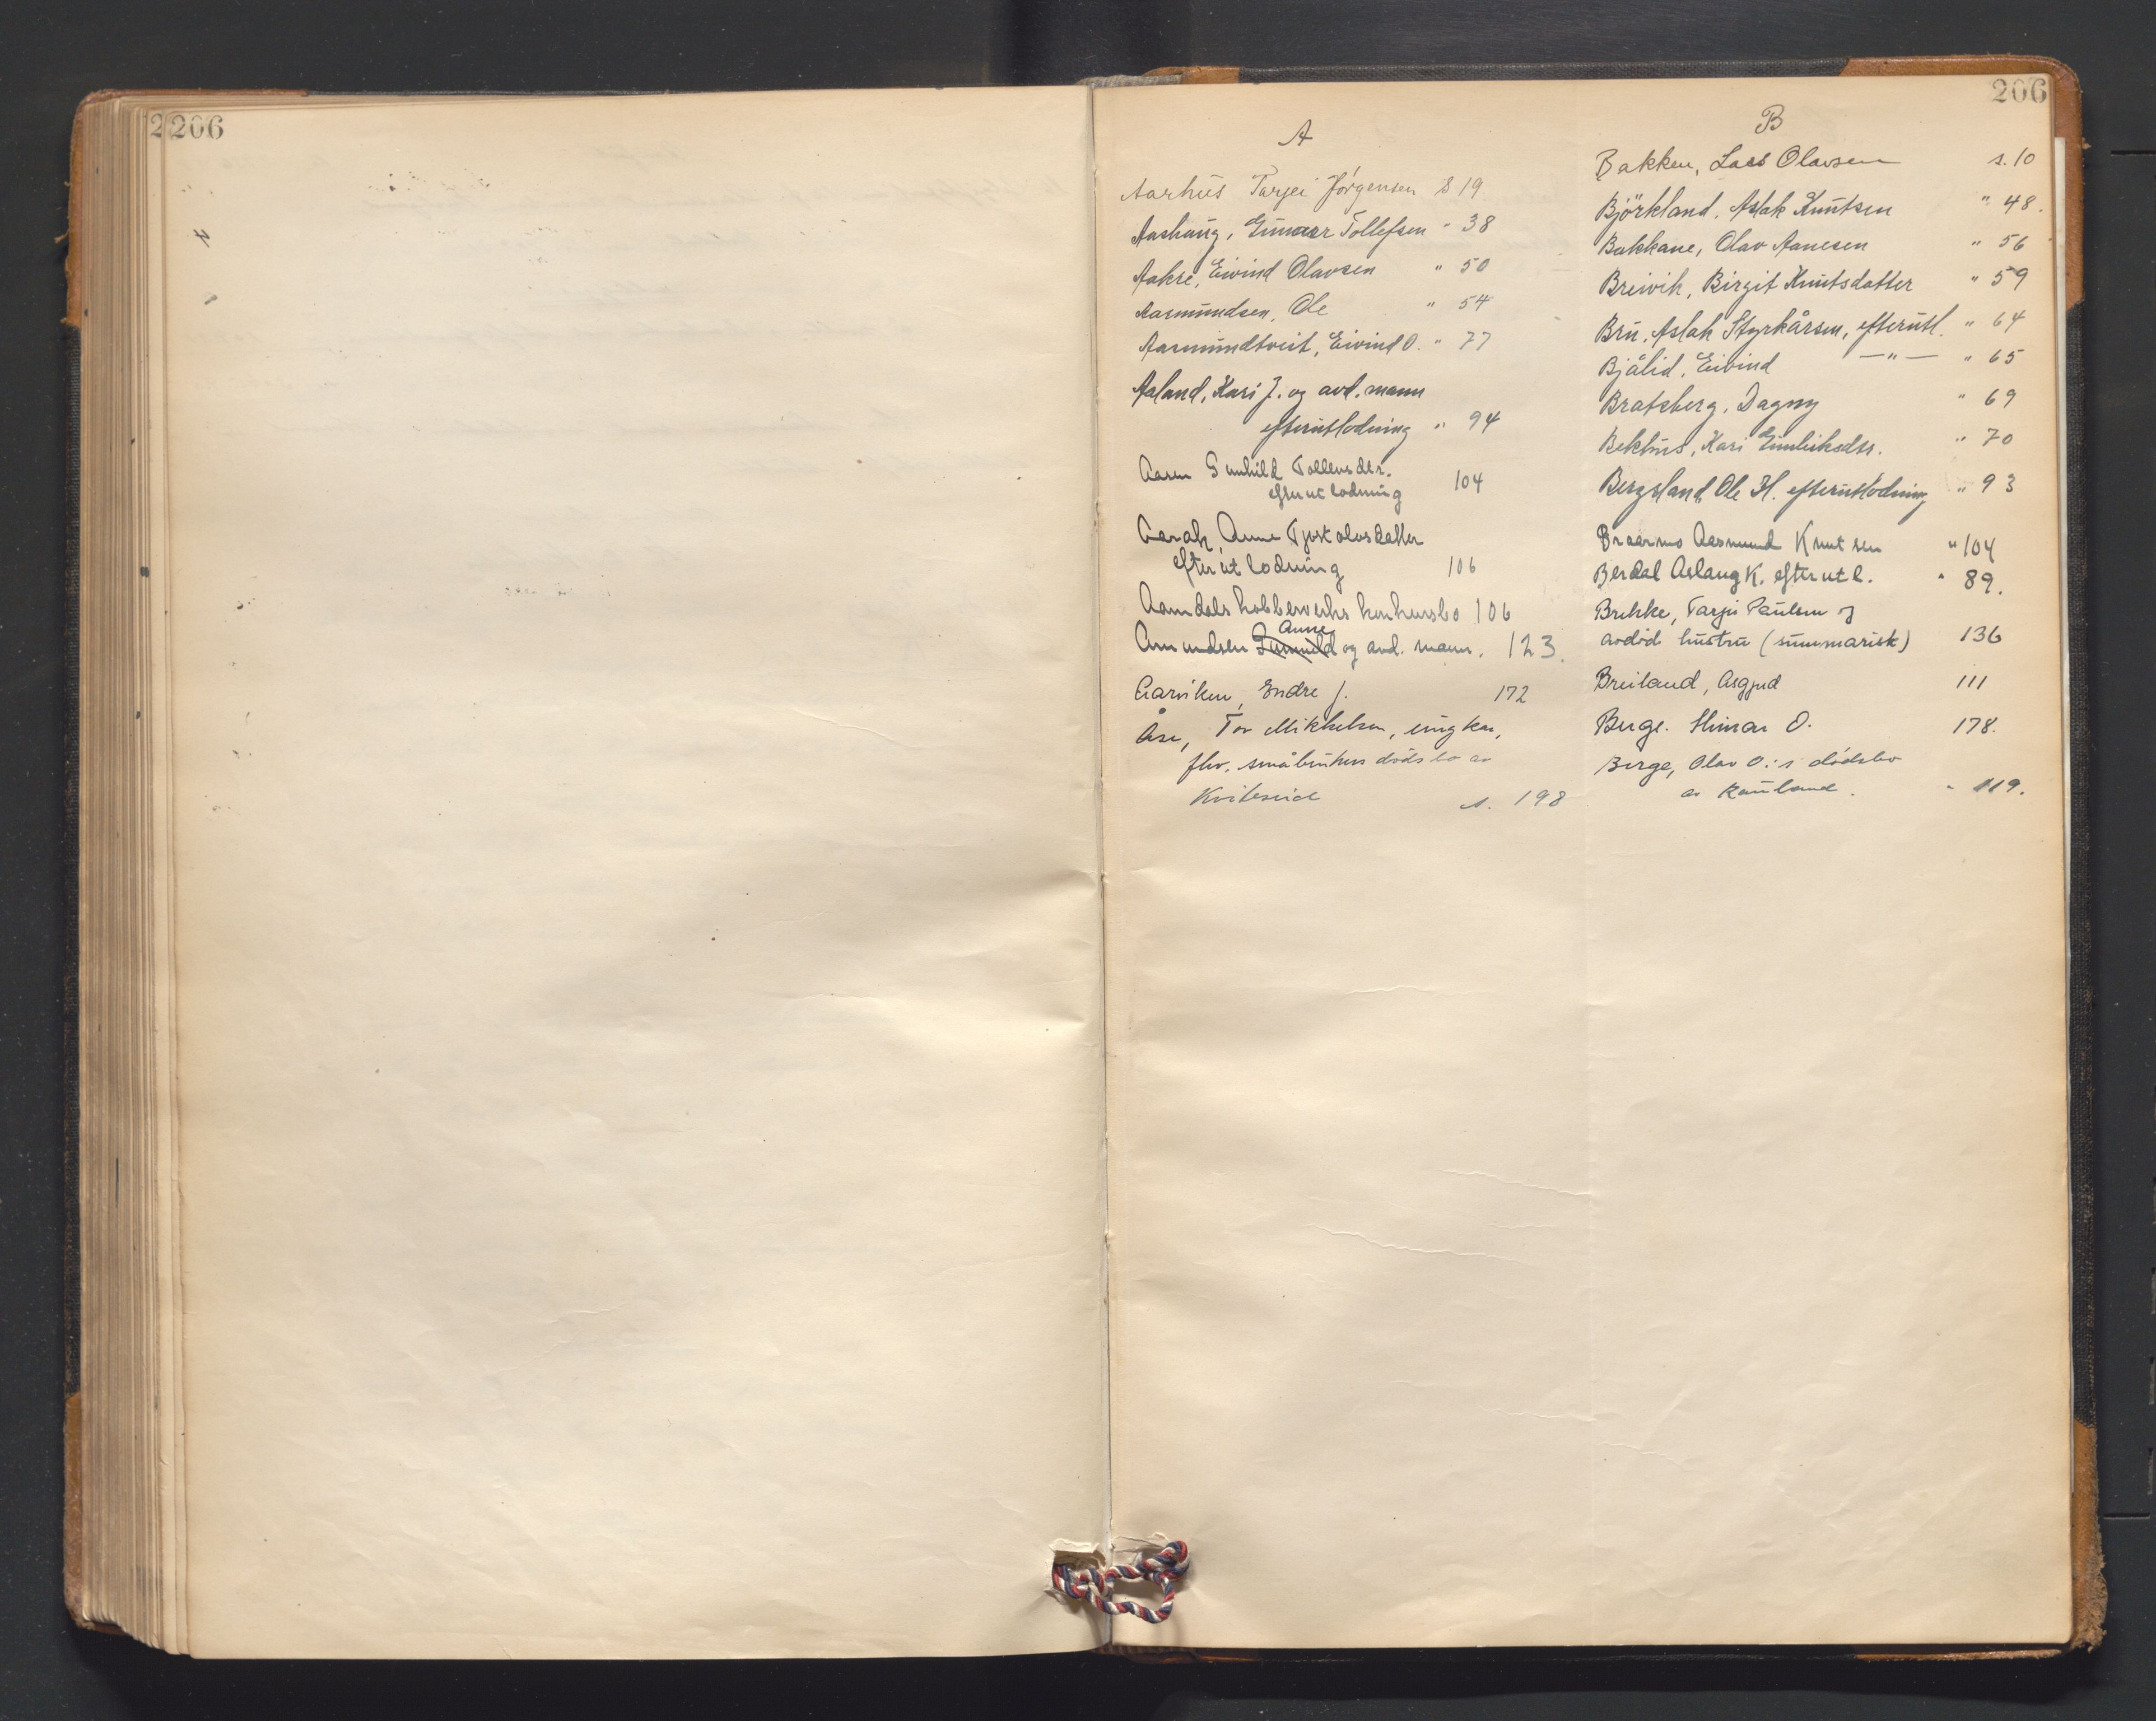 206
206
A
Aarhus Tarjei Jørgensen S 19
Aashaug, Gunnar Tollefsen " 38
Aakre, Eivind Olavsen " 50
Aasmundsen, Ole " 54
Aasmundtveit, Eivind O. " 77
Aaland, Kari J. og avd. mann
efterutlodning " 94
Aasen Gunhild Tollevsdtr.
efterutlodning 104
Aarak, Anne Tjostolvsdatter
efterutlodning 106
Aamdals kobberverks konkursbo 106
Anne
Amundsen Gunnuld og avd. mann. 123.
Aarviken, Endre J. 172
Åse, Tov Mikkelsen, ungkar,
fhv. småbrukers dødsbo av
Kviteseid s. 198
B
Bakken, Lars Olavsen s. 10
Björkland, Aslak Knutsen " 48.
Bakkane, Olav Aanesen " 56
Breivik, Birgit Knutsdatter " 59
Bru, Aslak Styrkårsen, efterutl. " 64
Bjålid, Eivind —"— " 65
Bratsberg, Dagny " 69
Bekhus, Kari Gunleiksdtr. " 70
Bergsland, Ole H. efterutlodning " 93
Aasmund Knutsen " 104
Berdal Aslaug K. efterutl. " 89.
Brekke, Tarjei Paulsen og
avdöd hustru (summarisk) 136
Breiland, Asgjerd 111
Berge. O. 178.
Berge, Olav O.: s dödsbo
av Rauland. " 119.